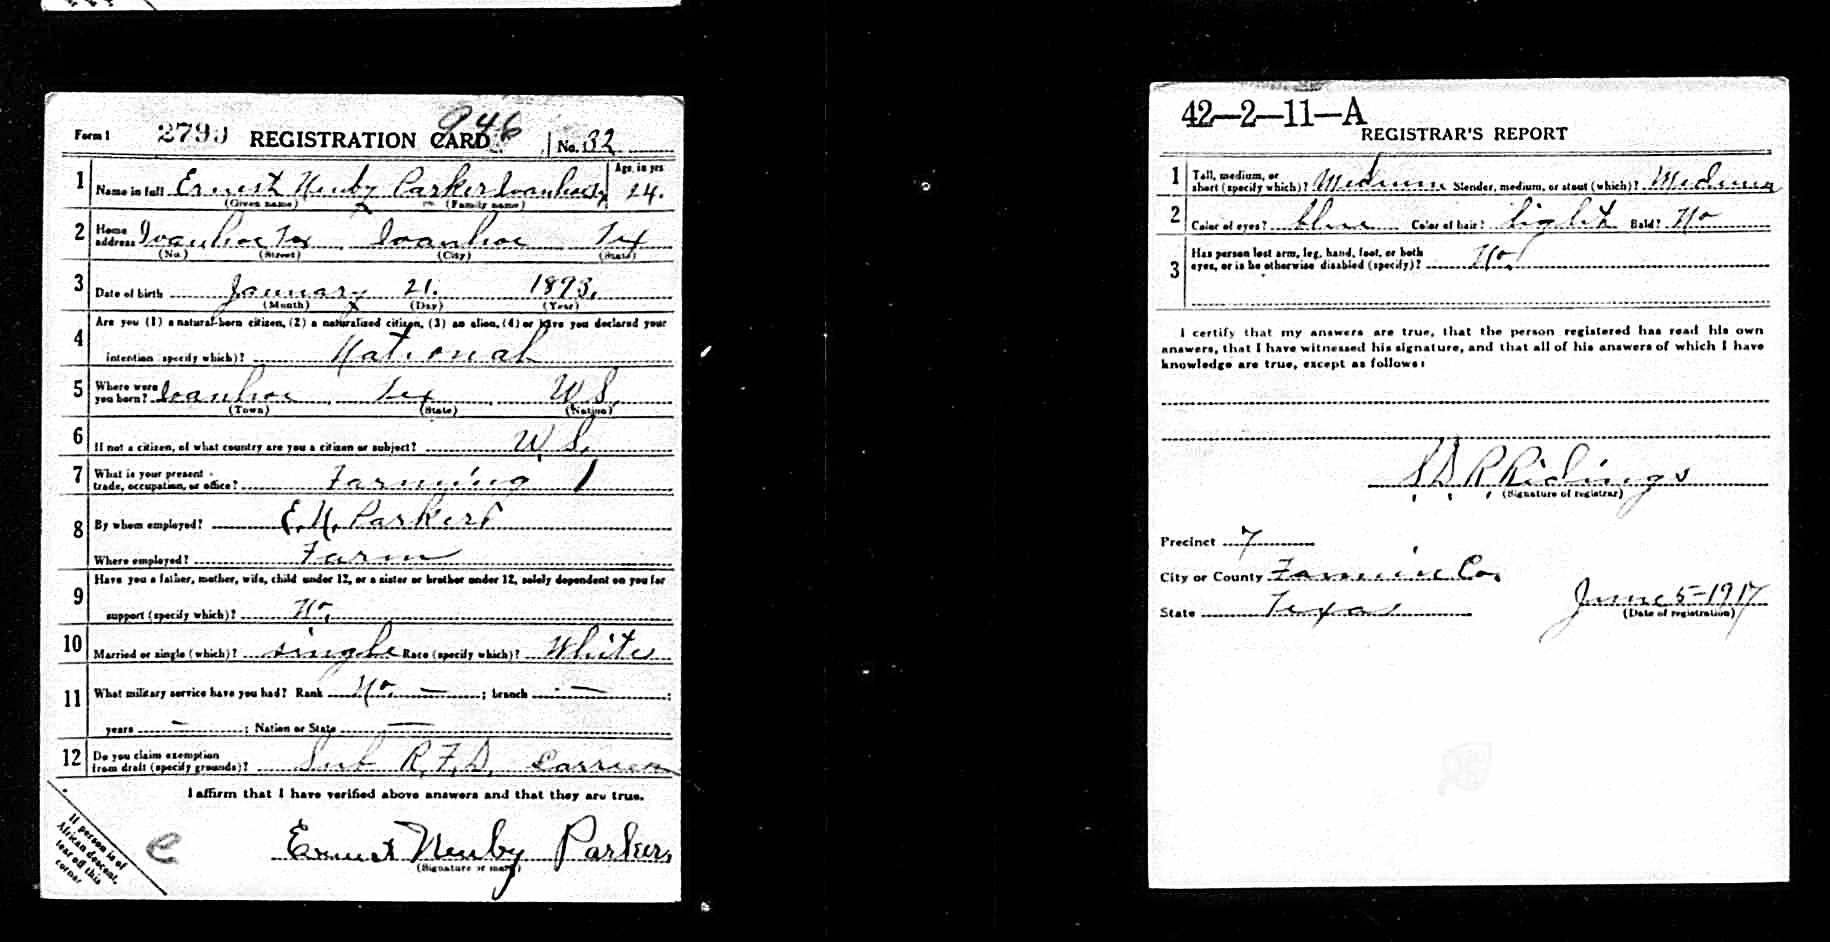 Form 1 2799 REGISTRATION CARD 946 No. 32
1 Name in full Ernest Newby Parker Ivanhoe Age, in yrs 24.
(Given name) (Family name)
2 Home address Ivanhoe Tex Ivanhoe Tex
(No.) (Street) (City) (State)
3 Date of birth January 21. 1893.
(Month) (Day) (Year)
4 Are you (1) a natural-born citizen, (2) a naturalized citizen, (3) an alien, (4) or have you declared your
intention (specify which)? National
5 Where were you born? Ivanhoe Tex U.S.
(Town) (State) (Nation)
6 If not a citizen, of what country are you a citizen or subject? U.S.
7 What is your present trade, occupation, or office? Farming 1
8 By whom employed? E.N. Parker
Where employed? Farm
9 Have you a father, mother, wife, child under 12, or a sister or brother under 12, solely dependent on you for
support (specify which)? No.
10 Married or single (which)? single Race (specify which)? White
11 What military service have you had? Rank No. — ; branch — ;
years — ; Nation or State —
12 Do you claim exemption from draft (specify grounds)? Sub R.F.D. Carrier
I affirm that I have verified above answers and that they are true.
Ernest Newby Parker
(Signature or mark)
If person is of
African descent,
tear off this
corner
e
42-2-11-A
REGISTRAR'S REPORT
1 Tall, medium, or short (specify which)? Medium Slender, medium, or stout (which)? Medium
2 Color of eyes? blue Color of hair? light Bald? No
3 Has person lost arm, leg, hand, foot, or both
eyes, or is he otherwise disabled (specify)? No.
I certify that my answers are true, that the person registered has read his own
answers, that I have witnessed his signature, and that all of his answers of which I have
knowledge are true, except as follows:
S.D.R. Ridings
(Signature of registrar)
Precinct 7
City or County Fannin Co.
State Texas June 5-1917
(Date of registration)